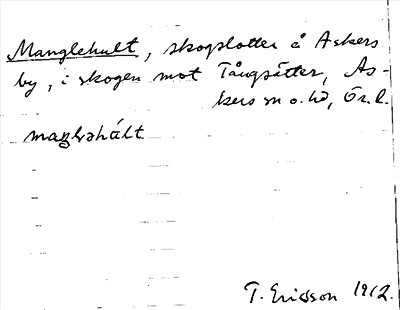 Manglehult, skogslotter å Askers
by, i skogen mot Tångsätter, As-
kers sn o. hd, Ör. l.
maŋləhúlt
T. Ericsson 1912.